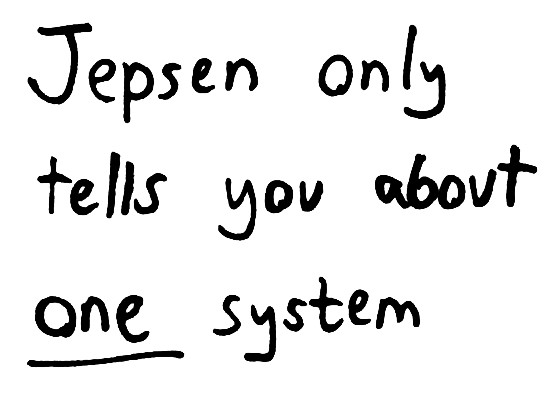 Jepsen only
tells you about
one system